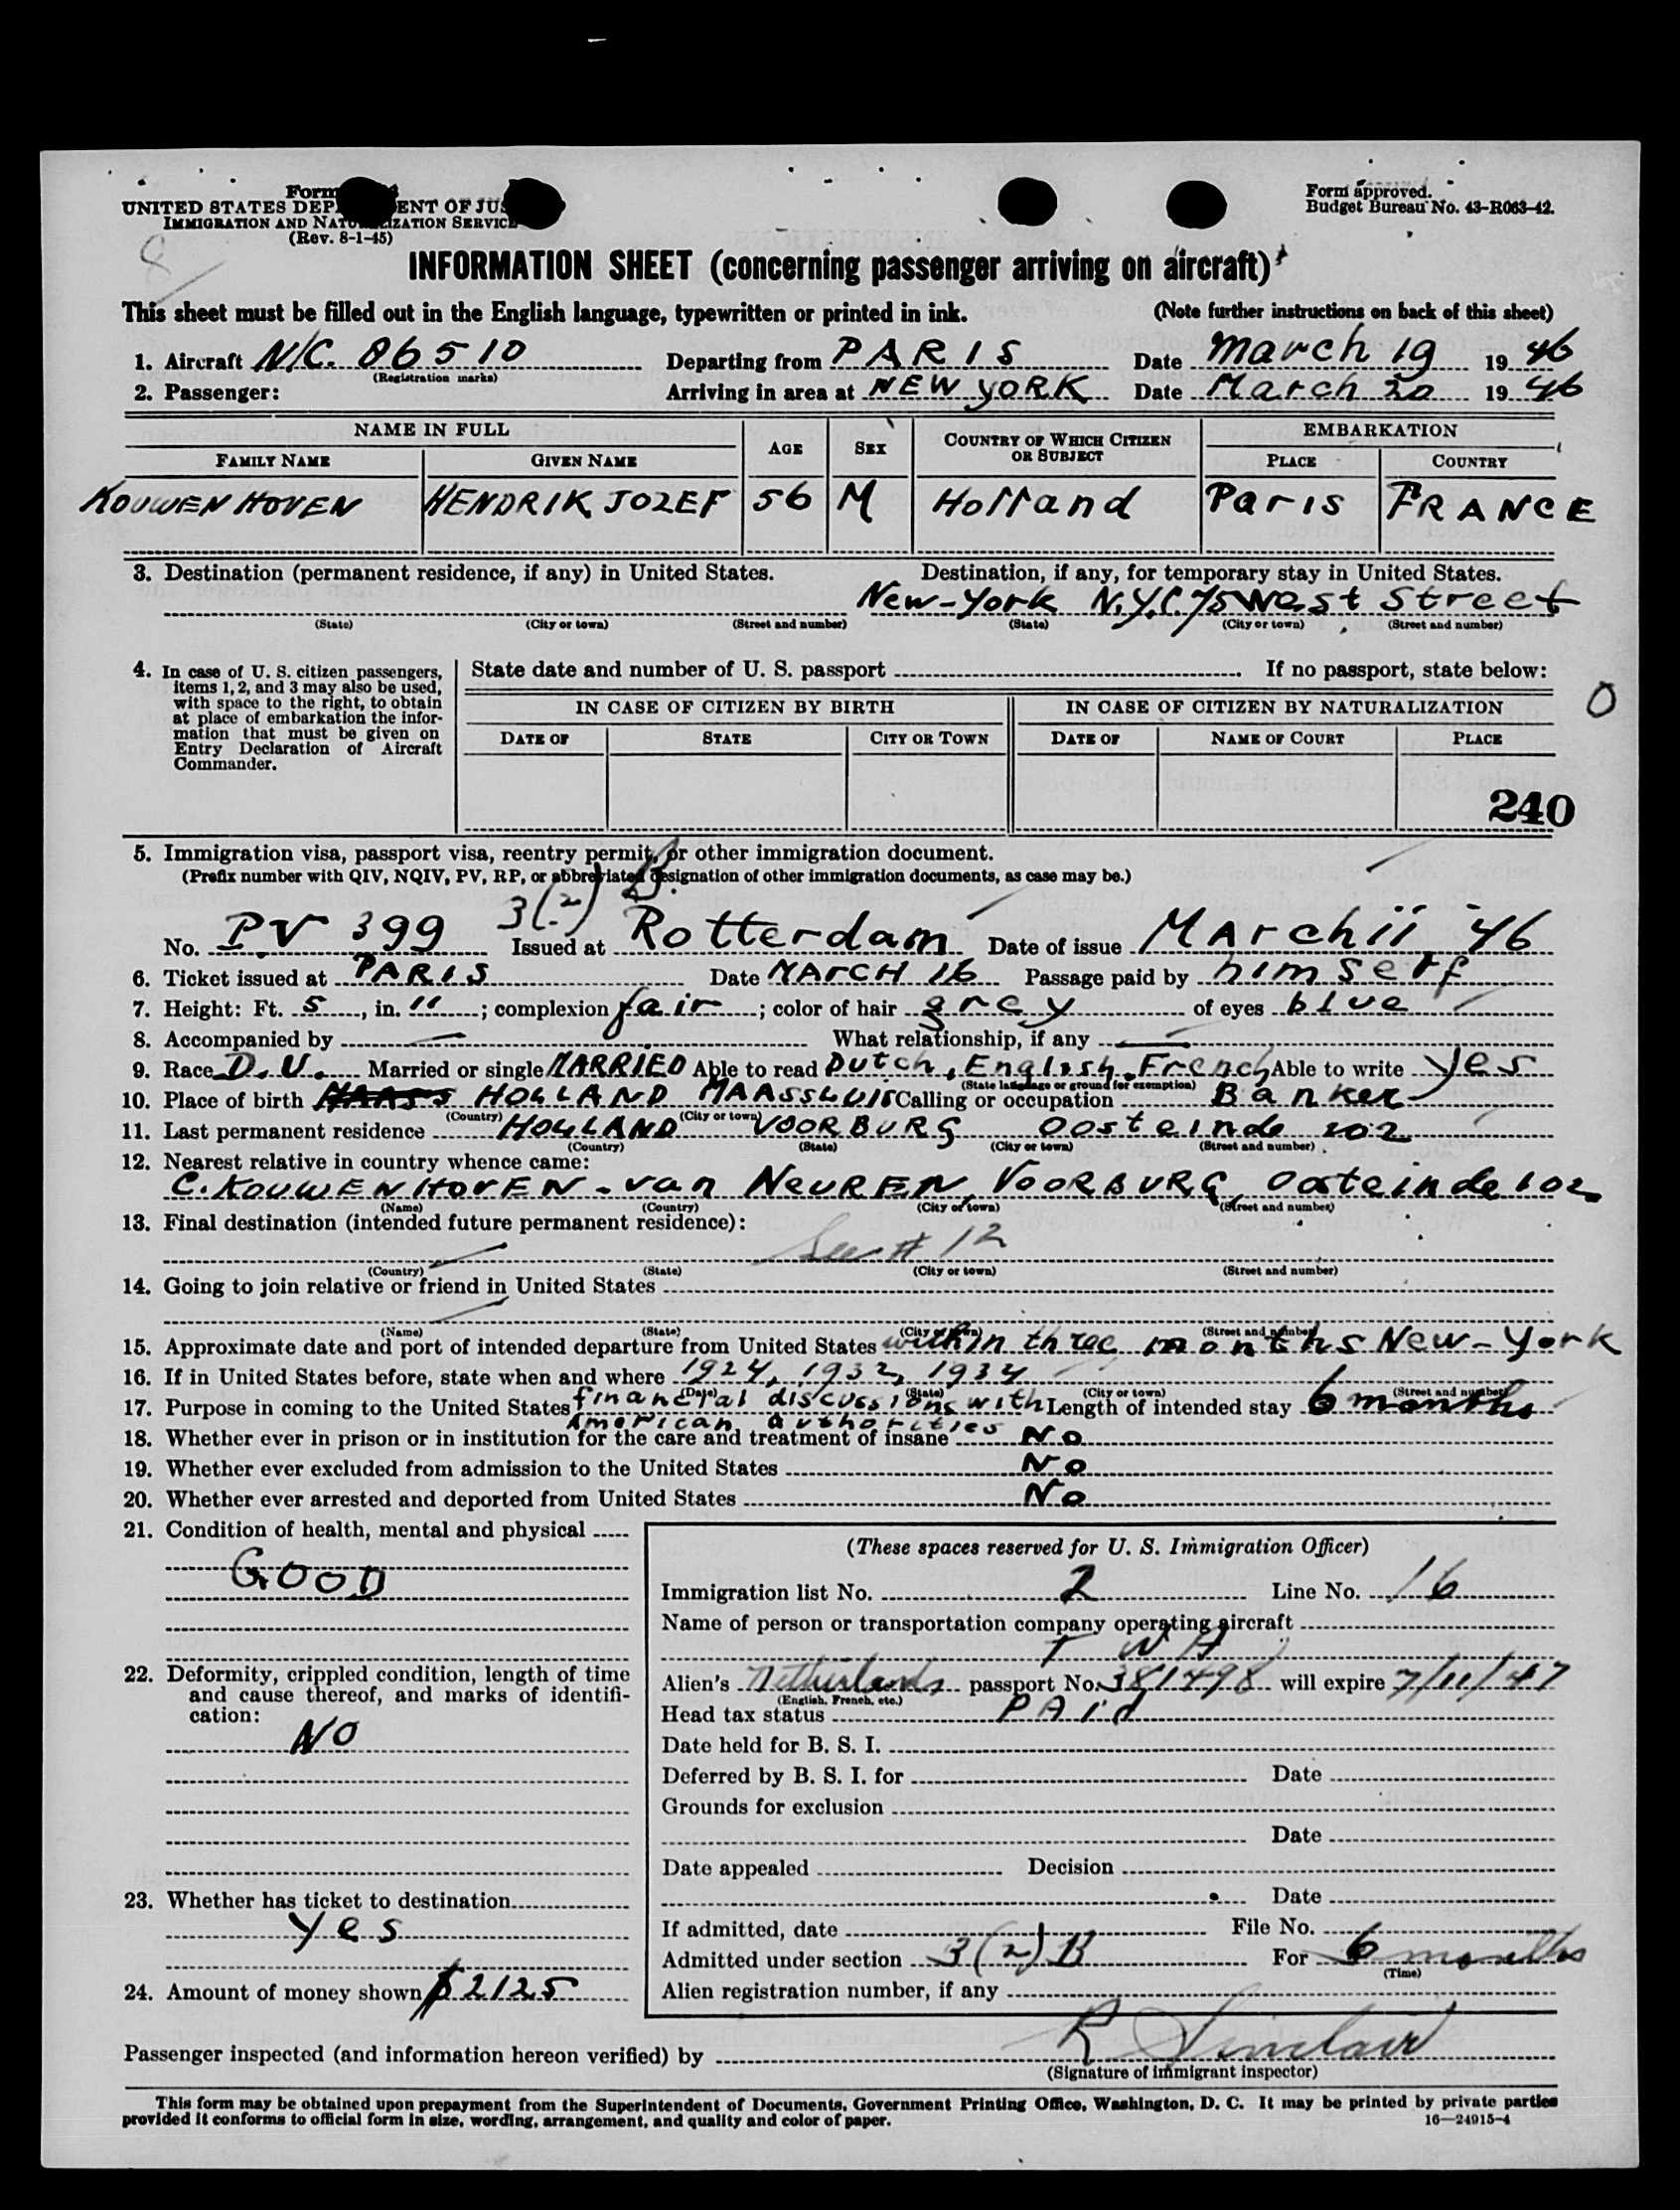 Form
UNITED STATES DEP ENT OF JUS
IMMIGRATION AND NATU LIZATION SERVICE
(Rev. 8-1-45)
Form approved.
Budget Bureau No. 43-R063-42.
8
INFORMATION SHEET (concerning passenger arriving on aircraft)
This sheet must be filled out in the English language, typewritten or printed in ink. (Note further instructions on back of this sheet)
1. Aircraft N/C. 86510 Departing from PARIS Date March 19 1946
(Registration marks)
2. Passenger: Arriving in area at NEW YORK Date March 20 1946
NAME IN FULL AGE SEX COUNTRY OF WHICH CITIZEN OR SUBJECT EMBARKATION
FAMILY NAME GIVEN NAME PLACE COUNTRY
KOUWENHOVEN HENDRIK JOZEF 56 M Holland Paris FRANCE
3. Destination (permanent residence, if any) in United States. Destination, if any, for temporary stay in United States.
New-York N.Y.C. 75 West Street
(State) (City or town) (Street and number) (State) (City or town) (Street and number)
4. In case of U. S. citizen passengers, items 1, 2, and 3 may also be used, with space to the right, to obtain at place of embarkation the information that must be given on Entry Declaration of Aircraft Commander.
State date and number of U. S. passport . If no passport, state below:
IN CASE OF CITIZEN BY BIRTH IN CASE OF CITIZEN BY NATURALIZATION
0
DATE OF STATE CITY OR TOWN DATE OF NAME OF COURT PLACE
240
5. Immigration visa, passport visa, reentry permit, or other immigration document.
(Prefix number with QIV, NQIV, PV, RP, or abbreviated designation of other immigration documents, as case may be.)
3(2) B.
No. PV 399 Issued at Rotterdam Date of issue MArch 11 '46
6. Ticket issued at PARIS Date MARCH 16 Passage paid by himself
7. Height: Ft. 5, in. 11; complexion fair; color of hair grey of eyes blue
8. Accompanied by — What relationship, if any —
9. Race D.U. Married or single MARRIED Able to read Dutch, English, French Able to write yes
(State language or ground for exemption)
10. Place of birth HOLLAND MAASSLUIS Calling or occupation Banker
(Country) (City or town)
11. Last permanent residence HOLLAND VOORBURG Oosteinde 202
(Country) (State) (City or town) (Street and number)
12. Nearest relative in country whence came:
C. KOUWENHOVEN - van NeUREN, VOORBURG, Oosteinde 102
(Name) (Country) (City or town) (Street and number)
13. Final destination (intended future permanent residence):
See # 12
(Country) (State) (City or town) (Street and number)
14. Going to join relative or friend in United States
(Name) (State) (City or town) (Street and number)
15. Approximate date and port of intended departure from United States within three months New-York
16. If in United States before, state when and where 1924, 1932, 1934
(Date) (State) (City or town) (Street and number)
17. Purpose in coming to the United States financial discussions with American authorities Length of intended stay 6 months
18. Whether ever in prison or in institution for the care and treatment of insane No
19. Whether ever excluded from admission to the United States No
20. Whether ever arrested and deported from United States No
21. Condition of health, mental and physical
GOOD
22. Deformity, crippled condition, length of time and cause thereof, and marks of identification:
NO
23. Whether has ticket to destination
yes
24. Amount of money shown $2125
(These spaces reserved for U. S. Immigration Officer)
Immigration list No. 2 Line No. 16
Name of person or transportation company operating aircraft
T W A
Alien's Netherlands passport No. 381498 will expire 7/11/47
(English, French, etc.)
Head tax status PAId
Date held for B. S. I.
Deferred by B. S. I. for Date
Grounds for exclusion
Date
Date appealed Decision
Date
If admitted, date File No.
Admitted under section 3(2)B For 6 months
(Time)
Alien registration number, if any
Passenger inspected (and information hereon verified) by R Sinclair
(Signature of immigrant inspector)
This form may be obtained upon prepayment from the Superintendent of Documents, Government Printing Office, Washington, D. C. It may be printed by private parties
provided it conforms to official form in size, wording, arrangement, and quality and color of paper. 16—24915-4